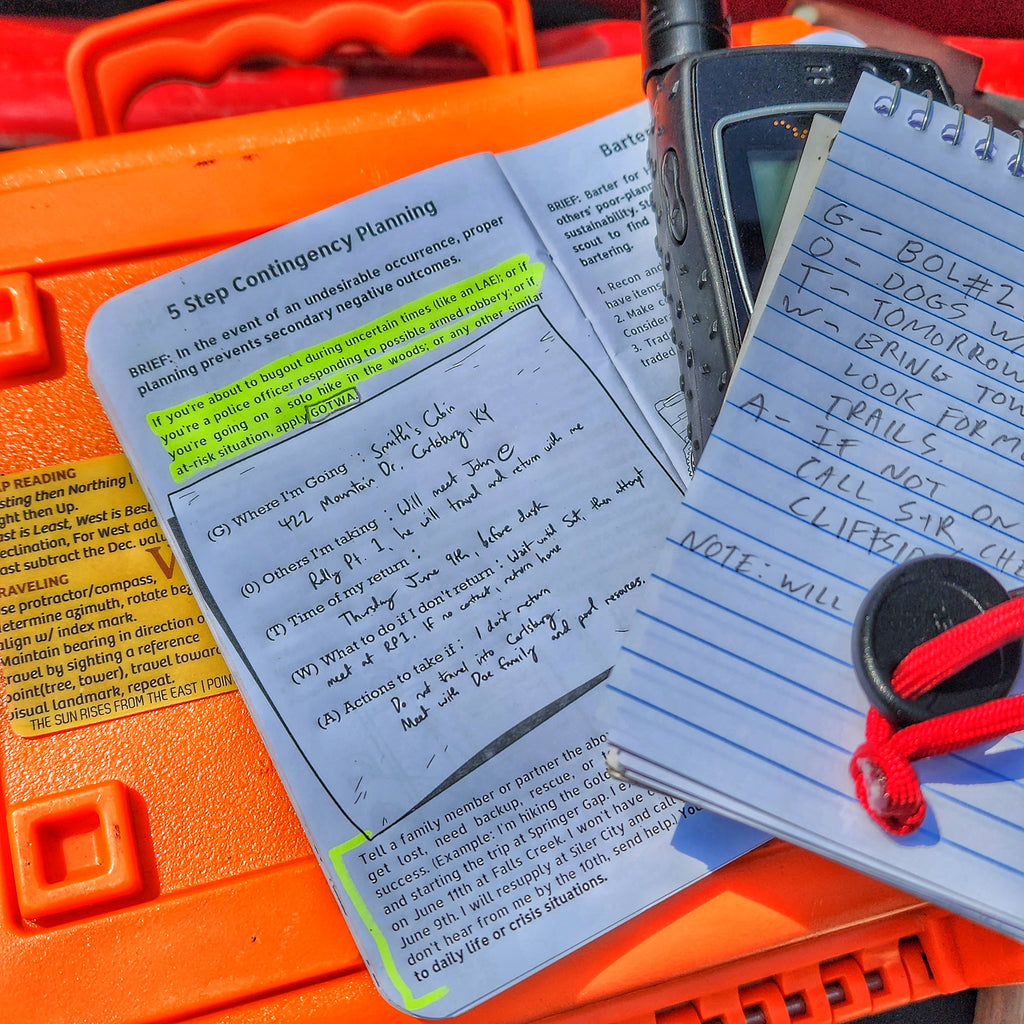 5 Step Contingency Planning
BRIEF: In the event of an undesirable occurrence, proper
planning prevents secondary negative outcomes.
If you're about to bugout during uncertain times (like an LAE); or if
you're a police officer responding to possible armed robbery; or if
you're going on a solo hike in the woods; or any other similar
at-risk situation, apply GOTWA.
(G) Where I'm Going : Smith's Cabin
422 Mountain Dr. Carlsburg, KY
(O) Others I'm taking : Will meet John @
Rally Pt. 1, he will travel and return with me
(T) Time of my return :
Thursday June 9th, before dusk
(W) What to do if I don't return : Wait until Sat, then attempt
meet at RP1. If no contact, return home
(A) Actions to take if : I don't return
Do not travel into Carlsburg
Meet with Doe family and pool resources.
Tell a family member or partner the abo
get lost, need backup, rescue, or
success. (Example: I'm hiking the Gold
and starting the trip at Springer Gap. I
on June 11th at Falls Creek. I won't have
June 9th. I will resupply at Siler City and call
don't hear from me by the 10th, send help) Yo
to daily life or crisis situations.
Barter
BRIEF: Barter for
others' poor-plan
sustainability. Su
scout to find
bartering.
1. Recon and
have items
2. Make c
Consider
3. Trad
traded
G - BOL#2
O - DOGS W
T - TOMORROW
W - BRING TOW
LOOK FOR M
TRAILS.
A - IF NOT ON
CALL S+R, CHE
CLIFFSID
NOTE: WILL
P READING
sting then Northing
ght then Up.
ast is Least, West is Best
eclination, For West add
ast subtract the Dec. valu
RAVELING
se protractor/compass,
determine azimuth, rotate bez
align w/ index mark.
Maintain bearing in direction o
ravel by sighting a reference
point(tree, tower), travel toward
visual landmark, repeat.
THE SUN RISES FROM THE EAST | POIN